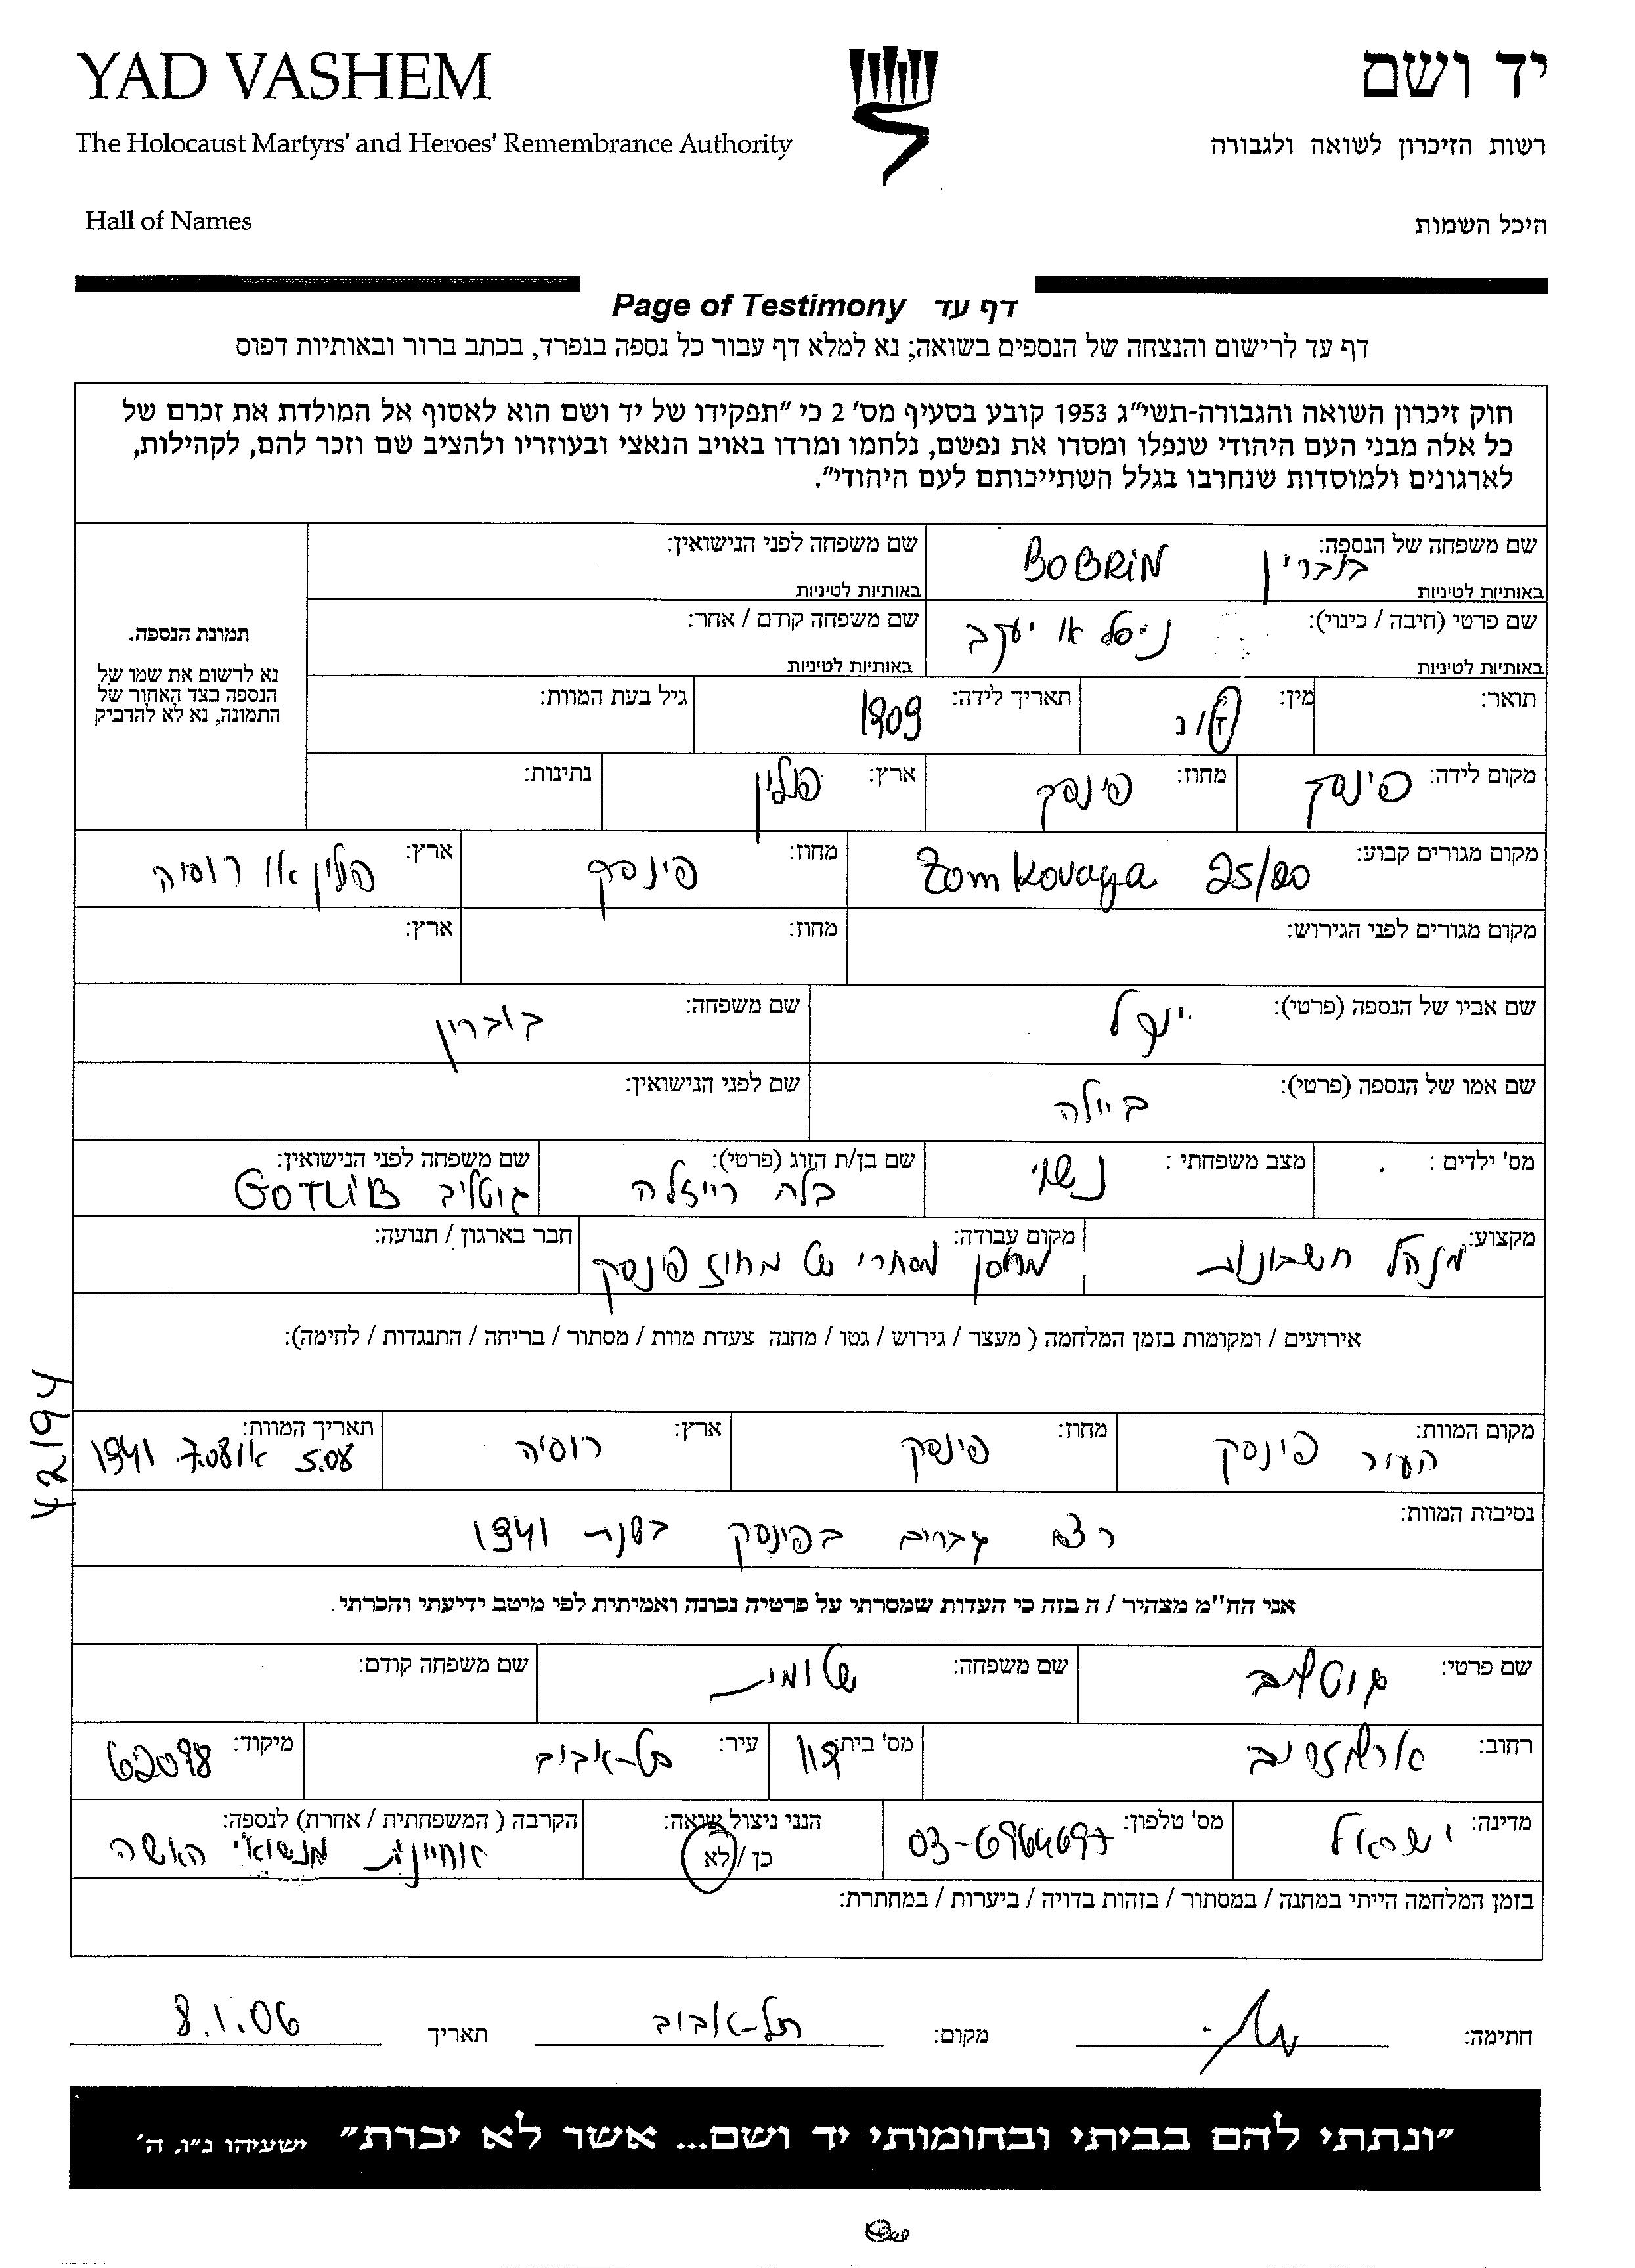 YAD VASHEM
יד ושם
The Holocaust Martyrs' and Heroes' Remembrance Authority
רשות הזיכרון לשואה ולגבורה
Hall of Names
היכל השמות
Page of Testimony דף עד
דף עד לרישום והנצחה של הנספים בשואה; נא למלא דף עבור כל נספה בנפרד, בכתב ברור ובאותיות דפוס
חוק זיכרון השואה והגבורה-תשי"ג 1953 קובע בסעיף מס' 2 כי "תפקידו של יד ושם הוא לאסוף אל המולדת את זכרם של
כל אלה מבני העם היהודי שנפלו ומסרו את נפשם, נלחמו ומרדו באויב הנאצי ובעוזריו ולהציב שם וזכר להם, לקהילות,
לארגונים ולמוסדות שנחרבו בגלל השתייכותם לעם היהודי".
שם משפחה של הנספה: בוברין BOBRIN
באותיות לטיניות
שם משפחה לפני הנישואין:
באותיות לטיניות
שם פרטי (חיבה / כינוי): או יעקב
באותיות לטיניות
שם משפחה קודם / אחר:
באותיות לטיניות
תמונת הנספה.
נא לרשום את שמו של
הנספה בצד האחור של
התמונה, נא לא להדביק
תואר:
מין: ז/נ
תאריך לידה: 1909
גיל בעת המוות:
מקום לידה: פינסק
מחוז: פינסק
ארץ: פולין
נתינות:
מקום מגורים קבוע: Zomkovaya 25/20
מחוז: פינסק
ארץ: פולין או רוסיה
מקום מגורים לפני הגירוש:
מחוז:
ארץ:
שם אביו של הנספה (פרטי):
שם משפחה: בוברין
שם אמו של הנספה (פרטי): ביילה
שם לפני הנישואין:
מס' ילדים :
מצב משפחתי : נשוי
שם בן/ת הזוג (פרטי): בלה רייזלה
שם משפחה לפני הנישואין: גוטליב GOTLIB
מקצוע: מנהל חשבונות
מקום עבודה: מחסן מסחרי של מחוז פינסק
חבר בארגון / תנועה:
אירועים / ומקומות בזמן המלחמה ( מעצר / גירוש / גטו / מחנה צעדת מוות / מסתור / בריחה / התנגדות / לחימה):
42194
מקום המוות: העיר פינסק
מחוז: פינסק
ארץ: רוסיה
תאריך המוות: 5.08 או 7.08 1941
נסיבות המוות: רצח גברים בפינסק בשנת 1941
אני הח"מ מצהיר / ה בזה כי העדות שמסרתי על פרטיה נכונה ואמיתית לפי מיטב ידיעתי והכרתי.
שם פרטי: גוטליב
שם משפחה: שלומית
שם משפחה קודם:
רחוב: ארלוזורוב
מס' בית: 117
עיר: תל-אביב
מיקוד: 62098
מדינה: ישראל
מס' טלפון: 03-6964697
הנני ניצול שואה: כן / לא
הקרבה ( המשפחתית / אחרת) לנספה: אחיינית מנשואי האשה
בזמן המלחמה הייתי במחנה / במסתור / בזהות בדויה / ביערות / במחתרת:
חתימה:
מקום: תל-אביב
תאריך 8.1.06
"ונתתי להם בביתי ובחומותי יד ושם... אשר לא יכרת" ישעיהו נ"ו, ה'